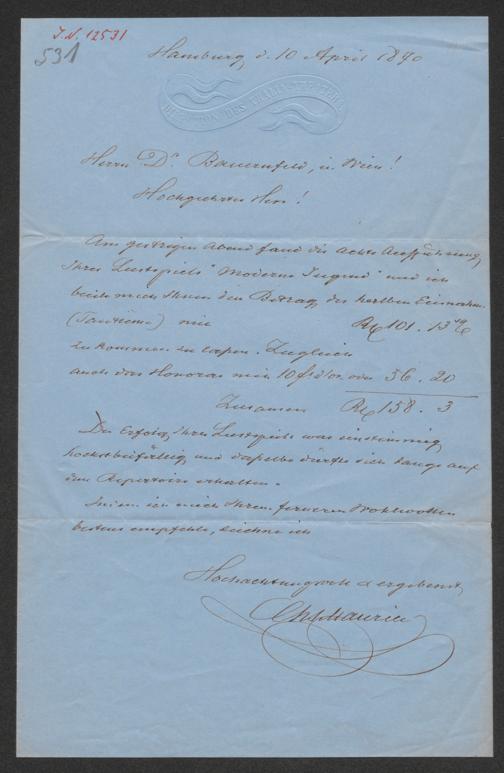 J.N. 12531
531
Hamburg, d. 10 April 1870
DIRECTION DES THALIATHEATERS
Herrn Dr. Bauernfeld, in Wien!
Hochgeehrter Herr!
Am gestrigen Abend fand die achte Aufführung
Ihres Lustspiels "Moderne Jugend" und ich
beeile mich Ihnen den Betrag der halben Einnahme
(Tantième) mit 101. 13
zukommen zu lassen. Zugleich
auch das Honorar mit 10 36. 20
Zusamen 138. 3
Der Erfolg Ihres Lustspiels war einstimmig
höchst beifällig und dasselbe dürfte sich lange auf
dem Repertoire erhalten.
Indem ich mich Ihrem ferneren Wohlwollen
bestens empfehle, zeichne ich
Hochachtungsvoll & ergebenst,
Ch Maurice